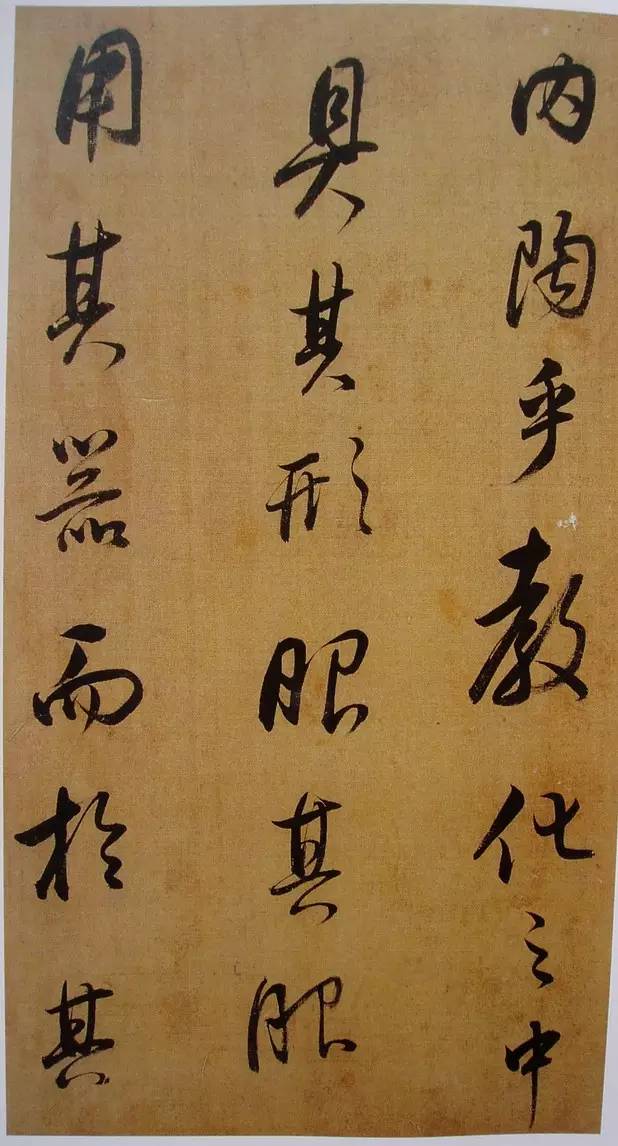 内陶乎教化之中
具其形服其服
用其器而於其